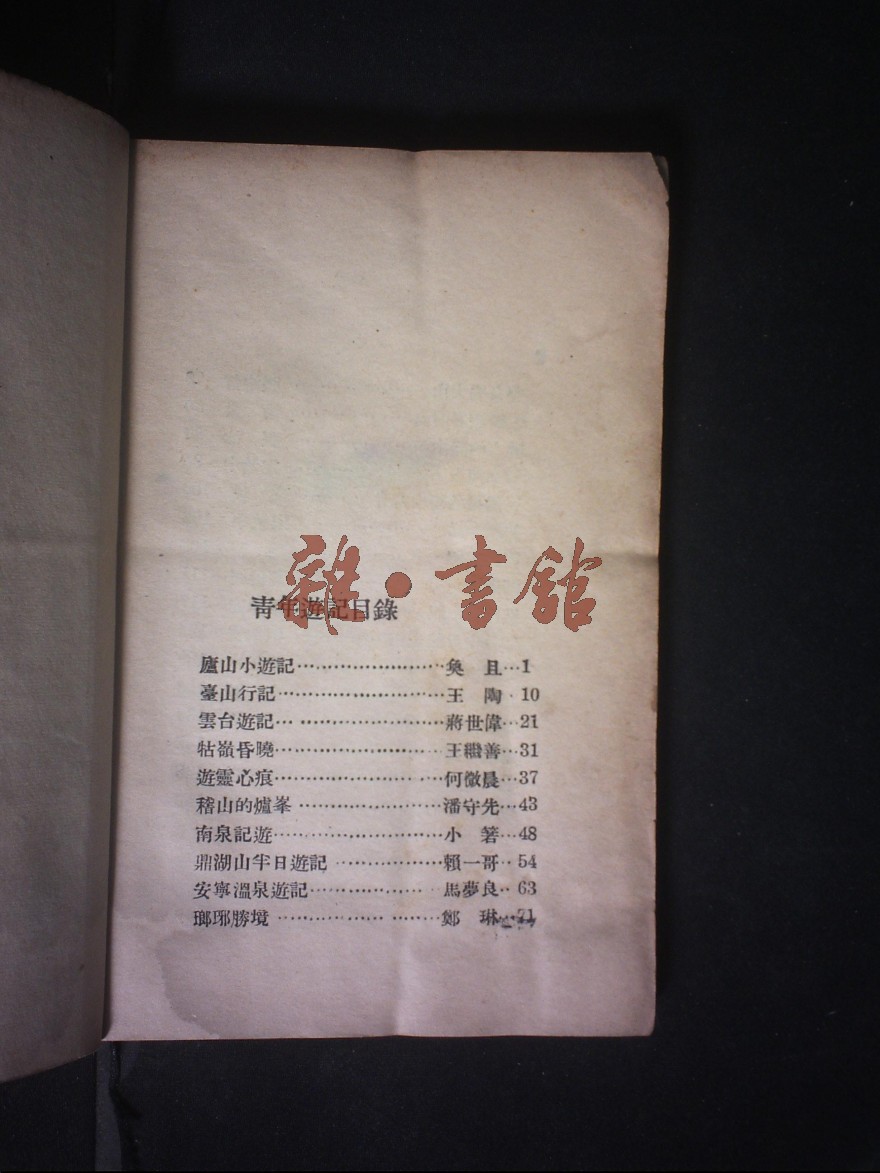 雜·書館
青年遊記目錄
廬山小遊記……………………奐且…1
臺山行記………………………王陶·10
雲台遊記………………………蔣世偉…21
牯嶺昏曉………………………王繼善…31
遊靈心痕………………………何微晨…37
稽山的爐峯……………………潘守先…43
南泉記遊………………………小箬…48
鼎湖山半日遊記………………賴一哥…54
安寧溫泉遊記…………………馬夢良…63
瑯琊勝境………………………鄭琳…71